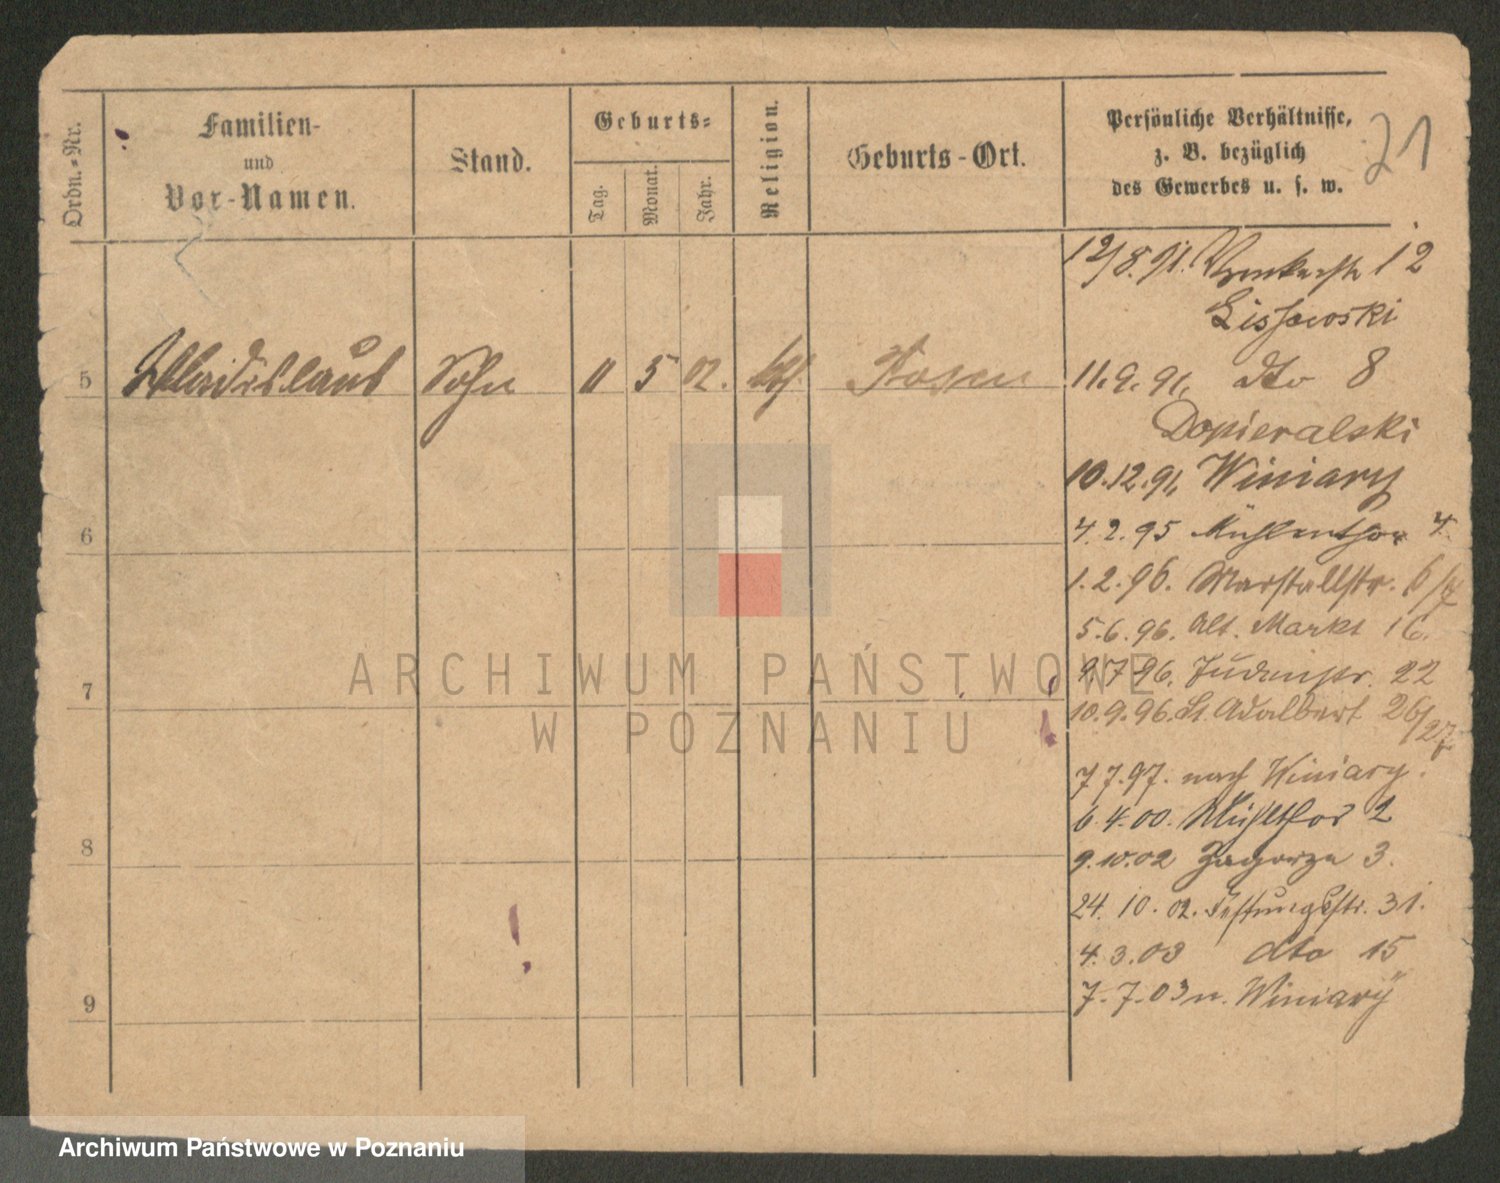 Ordn.-Nr.
Familien-
und
Vor-Namen.
Stand.
Geburts-
Tag.
Monat.
Jahr.
Religion.
Geburts-Ort.
Persönliche Verhältnisse,
z. B. bezüglich
des Gewerbes u. s. w.
21
12/8.91. 12
Lissowski
5 Wladislaus Sohn 11 5 02. kth. Posen
11.9.91. dto 8
Dopieralski
10.12.91. Winiary
6
4.2.95 Mühlenthor 4.
1.2.96. Marstallstr. 6/7
5.6.96. Alt. Markt 16.
7
9.7.96. Judenstr. 22
10.9.96. St. Adalbert 26/27
7.7.97. nach Winiary.
6.4.00. Mühlthor 2
8
9.10.02 Zagorze 3.
24.10.02. Festungsstr. 31.
4.3.03 dto 15
9
7.7.03 n. Winiary
ARCHIWUM PAŃSTWOWE
W POZNANIU
Archiwum Państwowe w Poznaniu